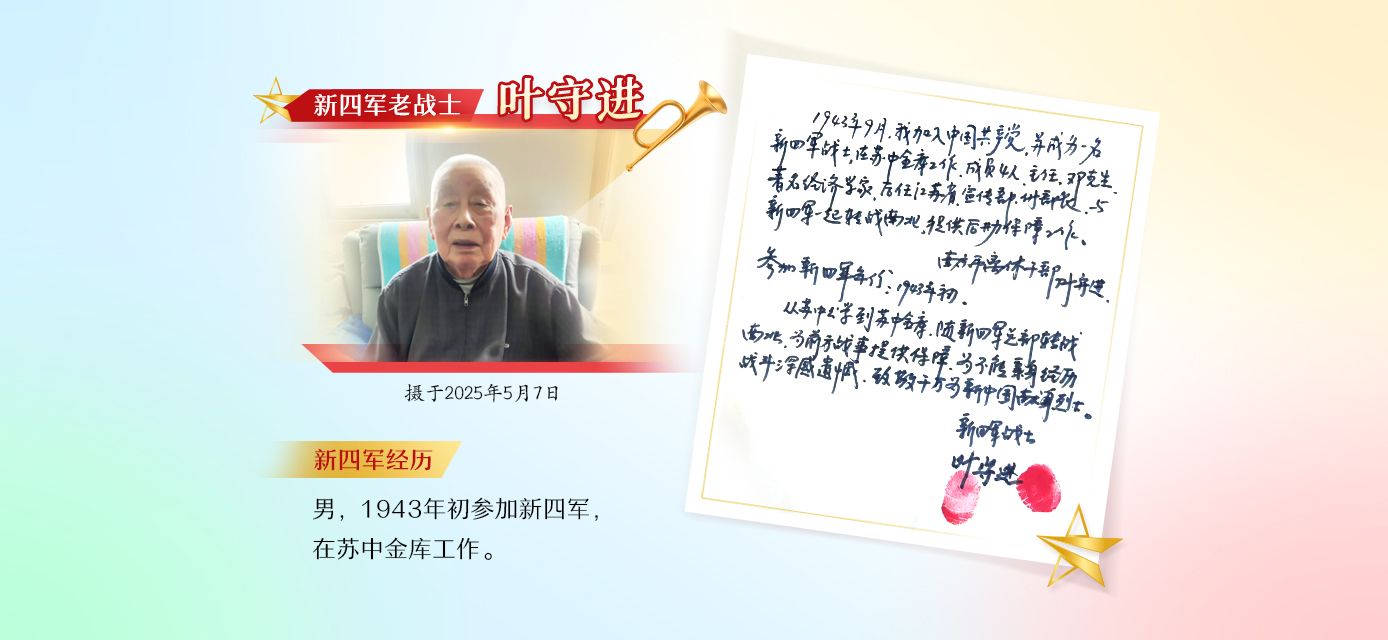 新四军老战士
叶守进
摄于2025年5月7日
新四军经历
男，1943年初参加新四军，
在苏中金库工作。
1943年9月，我加入中国共产党，并成为一名
新四军战士，在苏中金库工作，成员4人，主任，邓克生，
著名经济学家，后任江苏省宣传部付部长，与
新四军一起转战南北，提供后勤保障工作。
离休干部叶守进．
参加新四军年份：1943年初．
从苏中公学到苏中金库，随新四军总部转战
南北，为前方战事提供保障，为不能亲身经历
战斗深感遗憾．致敬千万为新中国献军烈士。
新四军战士
叶守进